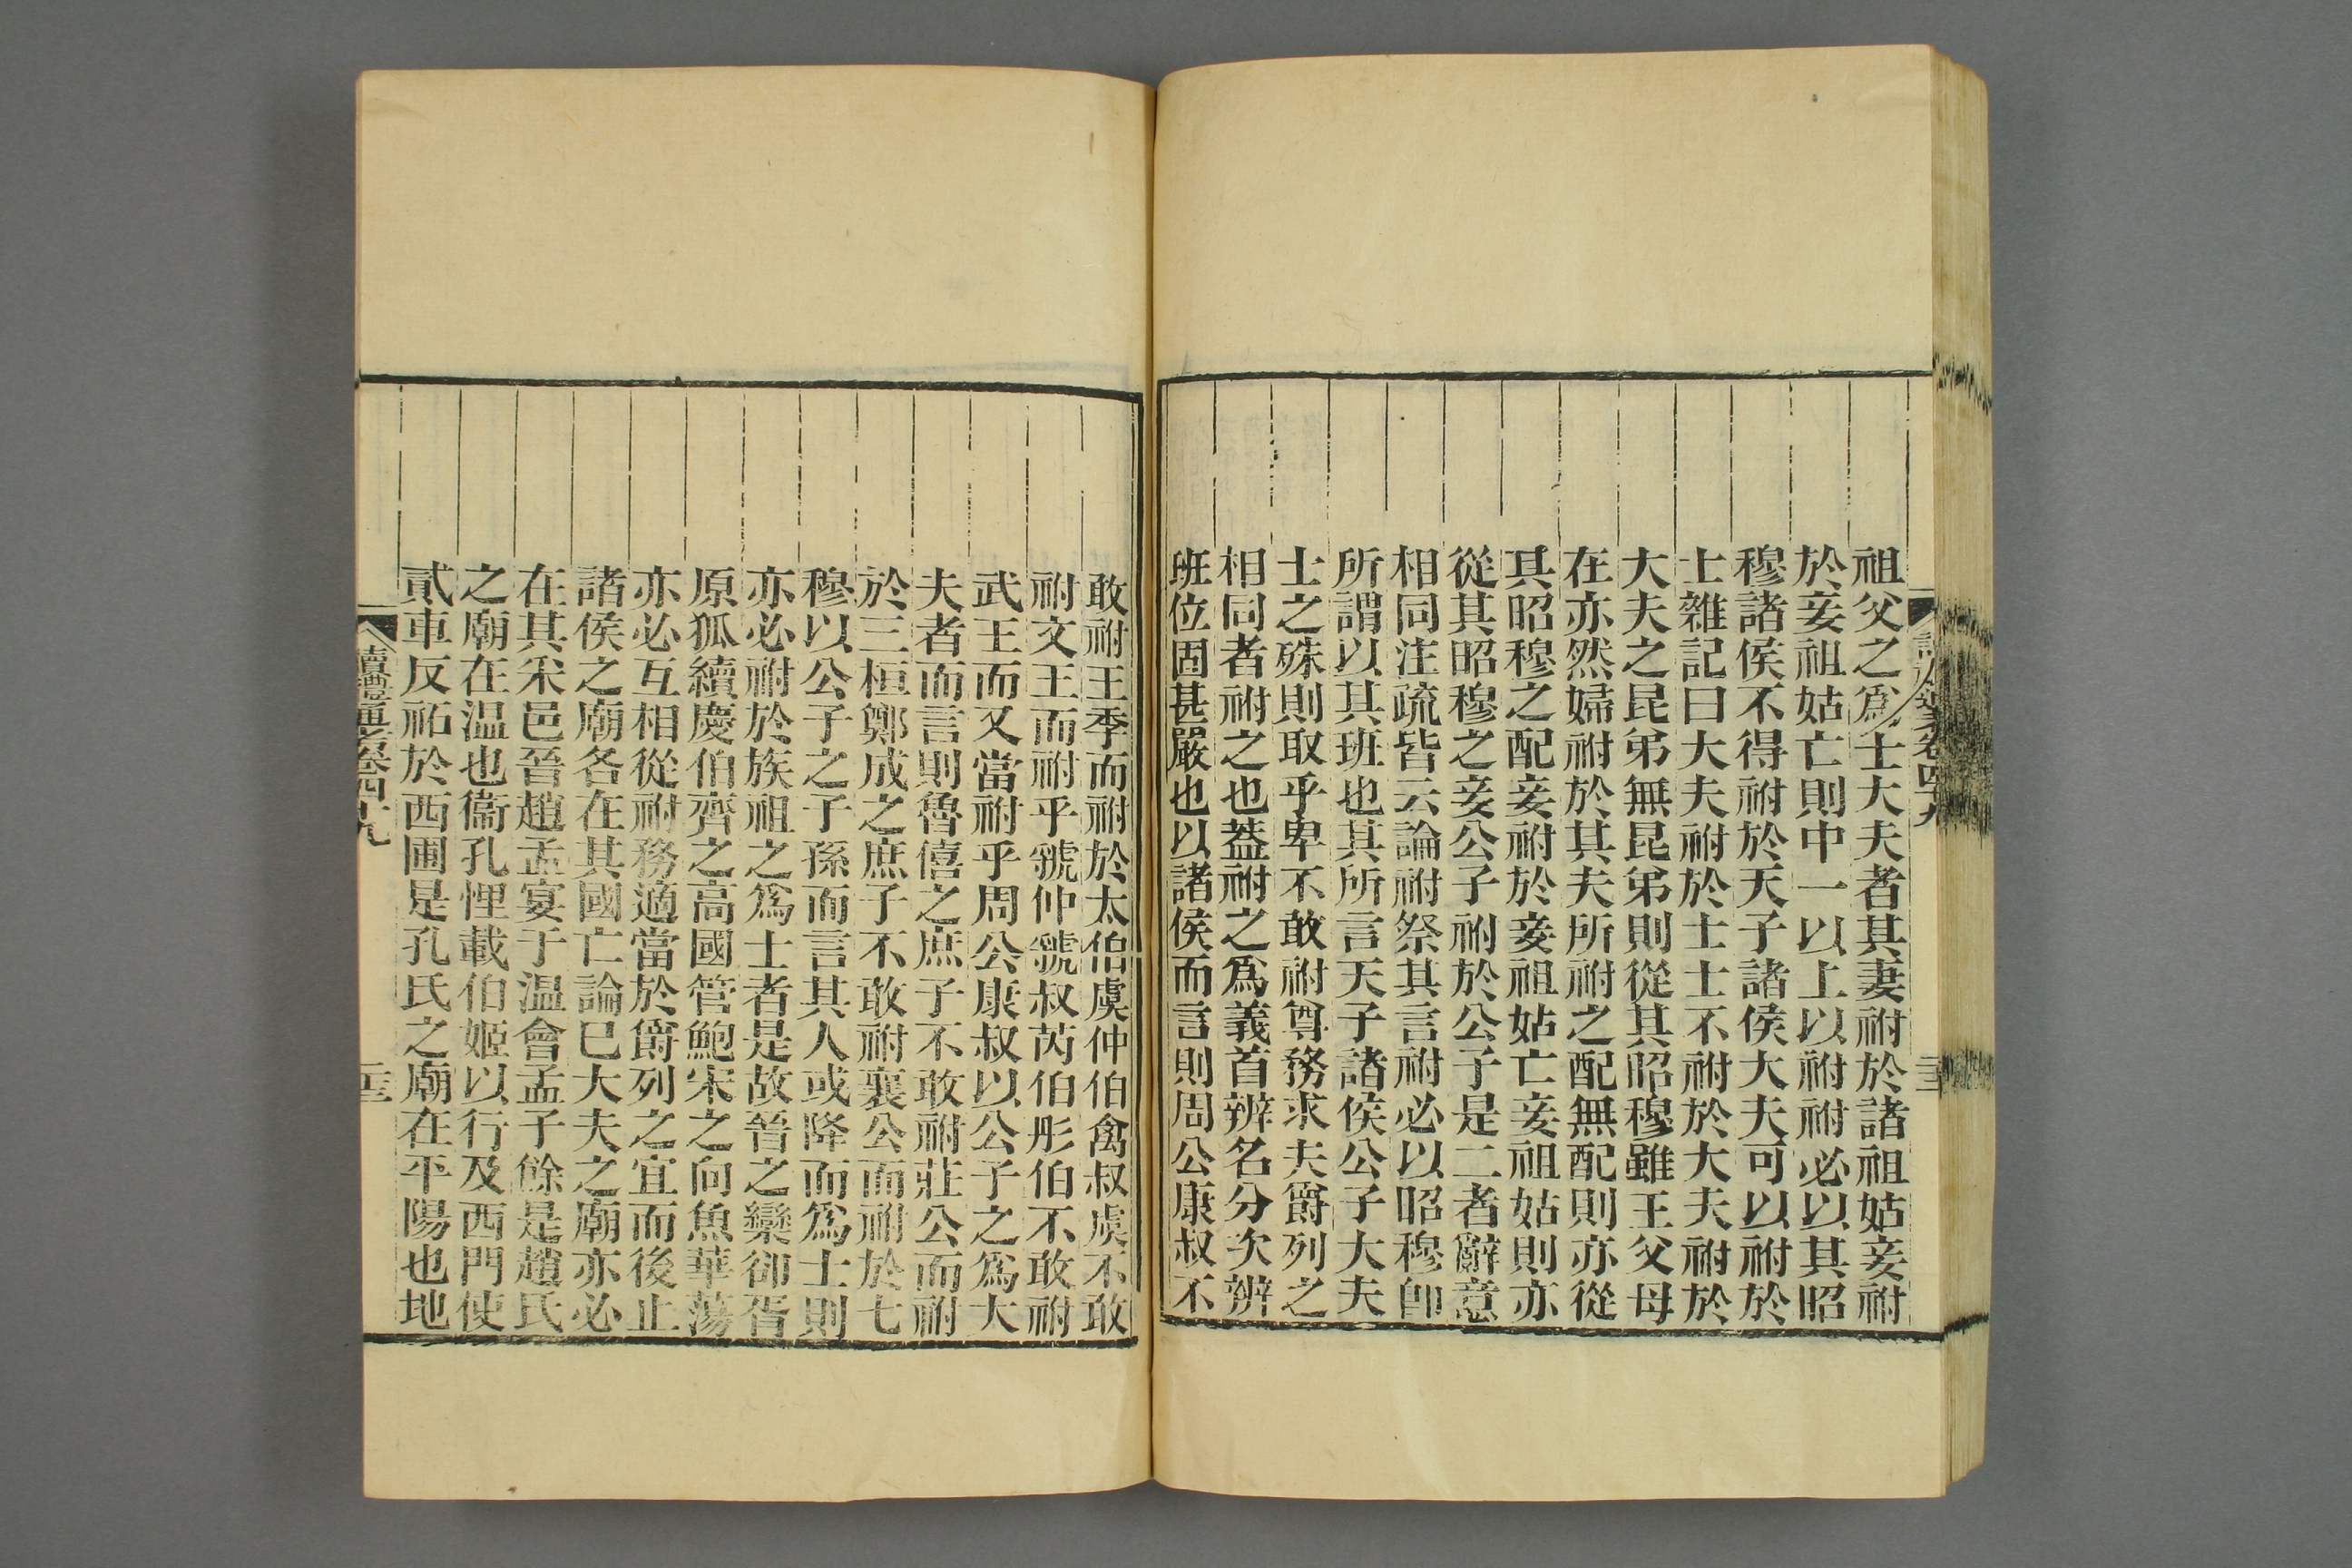 祖父之爲士大夫者其妻祔於諸祖姑妾祔
於妾祖姑亡則中一以上以祔祔必以其昭
穆諸侯不得祔於天子諸侯大夫可以祔於
士雜記曰大夫祔於士士不祔於大夫祔於
大夫之昆弟無昆弟則從其昭穆雖王父母
在亦然婦祔於其夫所祔之配無配則亦從
其昭穆之配妾祔於妾祖姑亡妾祖姑則亦
從其昭穆之妾公子祔於公子是二者辭意
相同注疏皆云論祔祭其言祔必以昭穆卽
所謂以其班也其所言天子諸侯公子大夫
士之殊則取乎卑不敢祔尊務求夫爵列之
相同者祔之也葢祔之爲義首辨名分次辨
班位固甚嚴也以諸侯而言則周公康叔不
敢祔王季而祔於太伯虞仲伯禽叔虞不敢
祔文王而祔乎虢仲虢叔芮伯彤伯不敢祔
武王而又當祔乎周公康叔以公子之爲大
夫者而言則魯僖之庶子不敢祔莊公而祔
於三桓鄭成之庶子不敢祔襄公而祔於七
穆以公子之子孫而言其人或降而爲士則
亦必祔於族祖之爲士者是故晉之欒郤胥
原狐續慶伯齊之高國管鮑宋之向魚華蕩
亦必互相從祔務適當於爵列之宜而後止
諸侯之廟各在其國亡論巳大夫之廟亦必
在其采邑晉趙孟宴于温會孟子餘是趙氏
之廟在温也衞孔悝載伯姬以行及西門使
貳車反祏於西圃是孔氏之廟在平陽也地
卷四十九
二十三